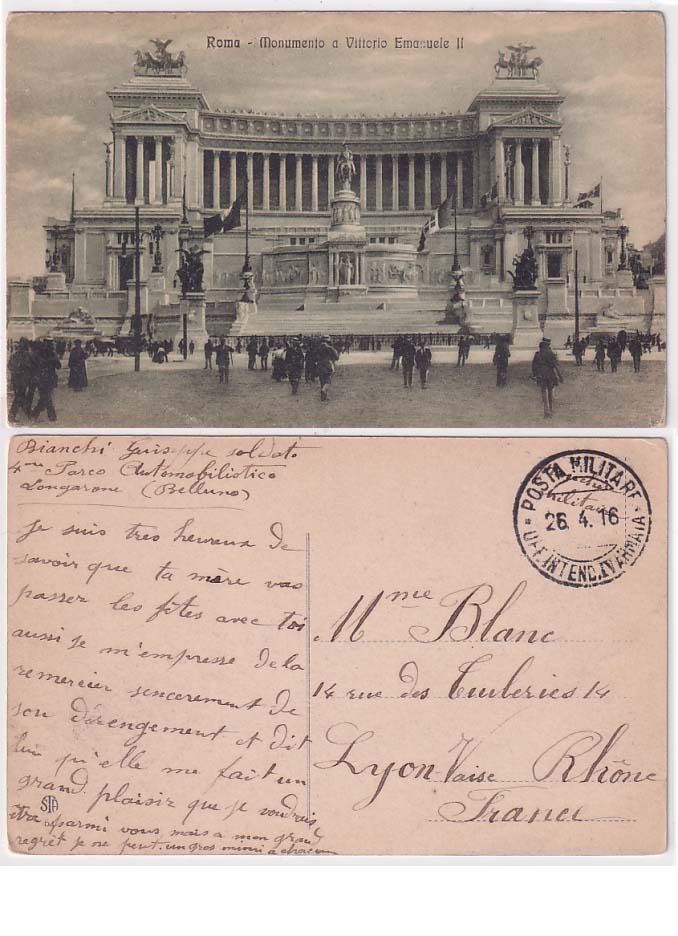 Roma - Monumento a Vittorio Emanuele II
Bianchi Guiseppe soldato
4me Parco Automobilistico
Longarone (Belluno)
Je suis tres heureux de
savoir que ta mère vas
passer les fêtes avec toi
aussi je m'empresse de la
remercier sencerement de
son dérengement et dit
lui qu'elle me fait un
grand plaisir que je voudrais
être parmi vous mais a mon grand
regret je ne peut. un gros mimi a chacun
STA
POSTA MILITARE
militaire
26. 4. 16
UFF. INTEND. IV ARMATA
Mme Blanc
14 rue des Tuileries 14
Lyon-Vaise Rhône
France